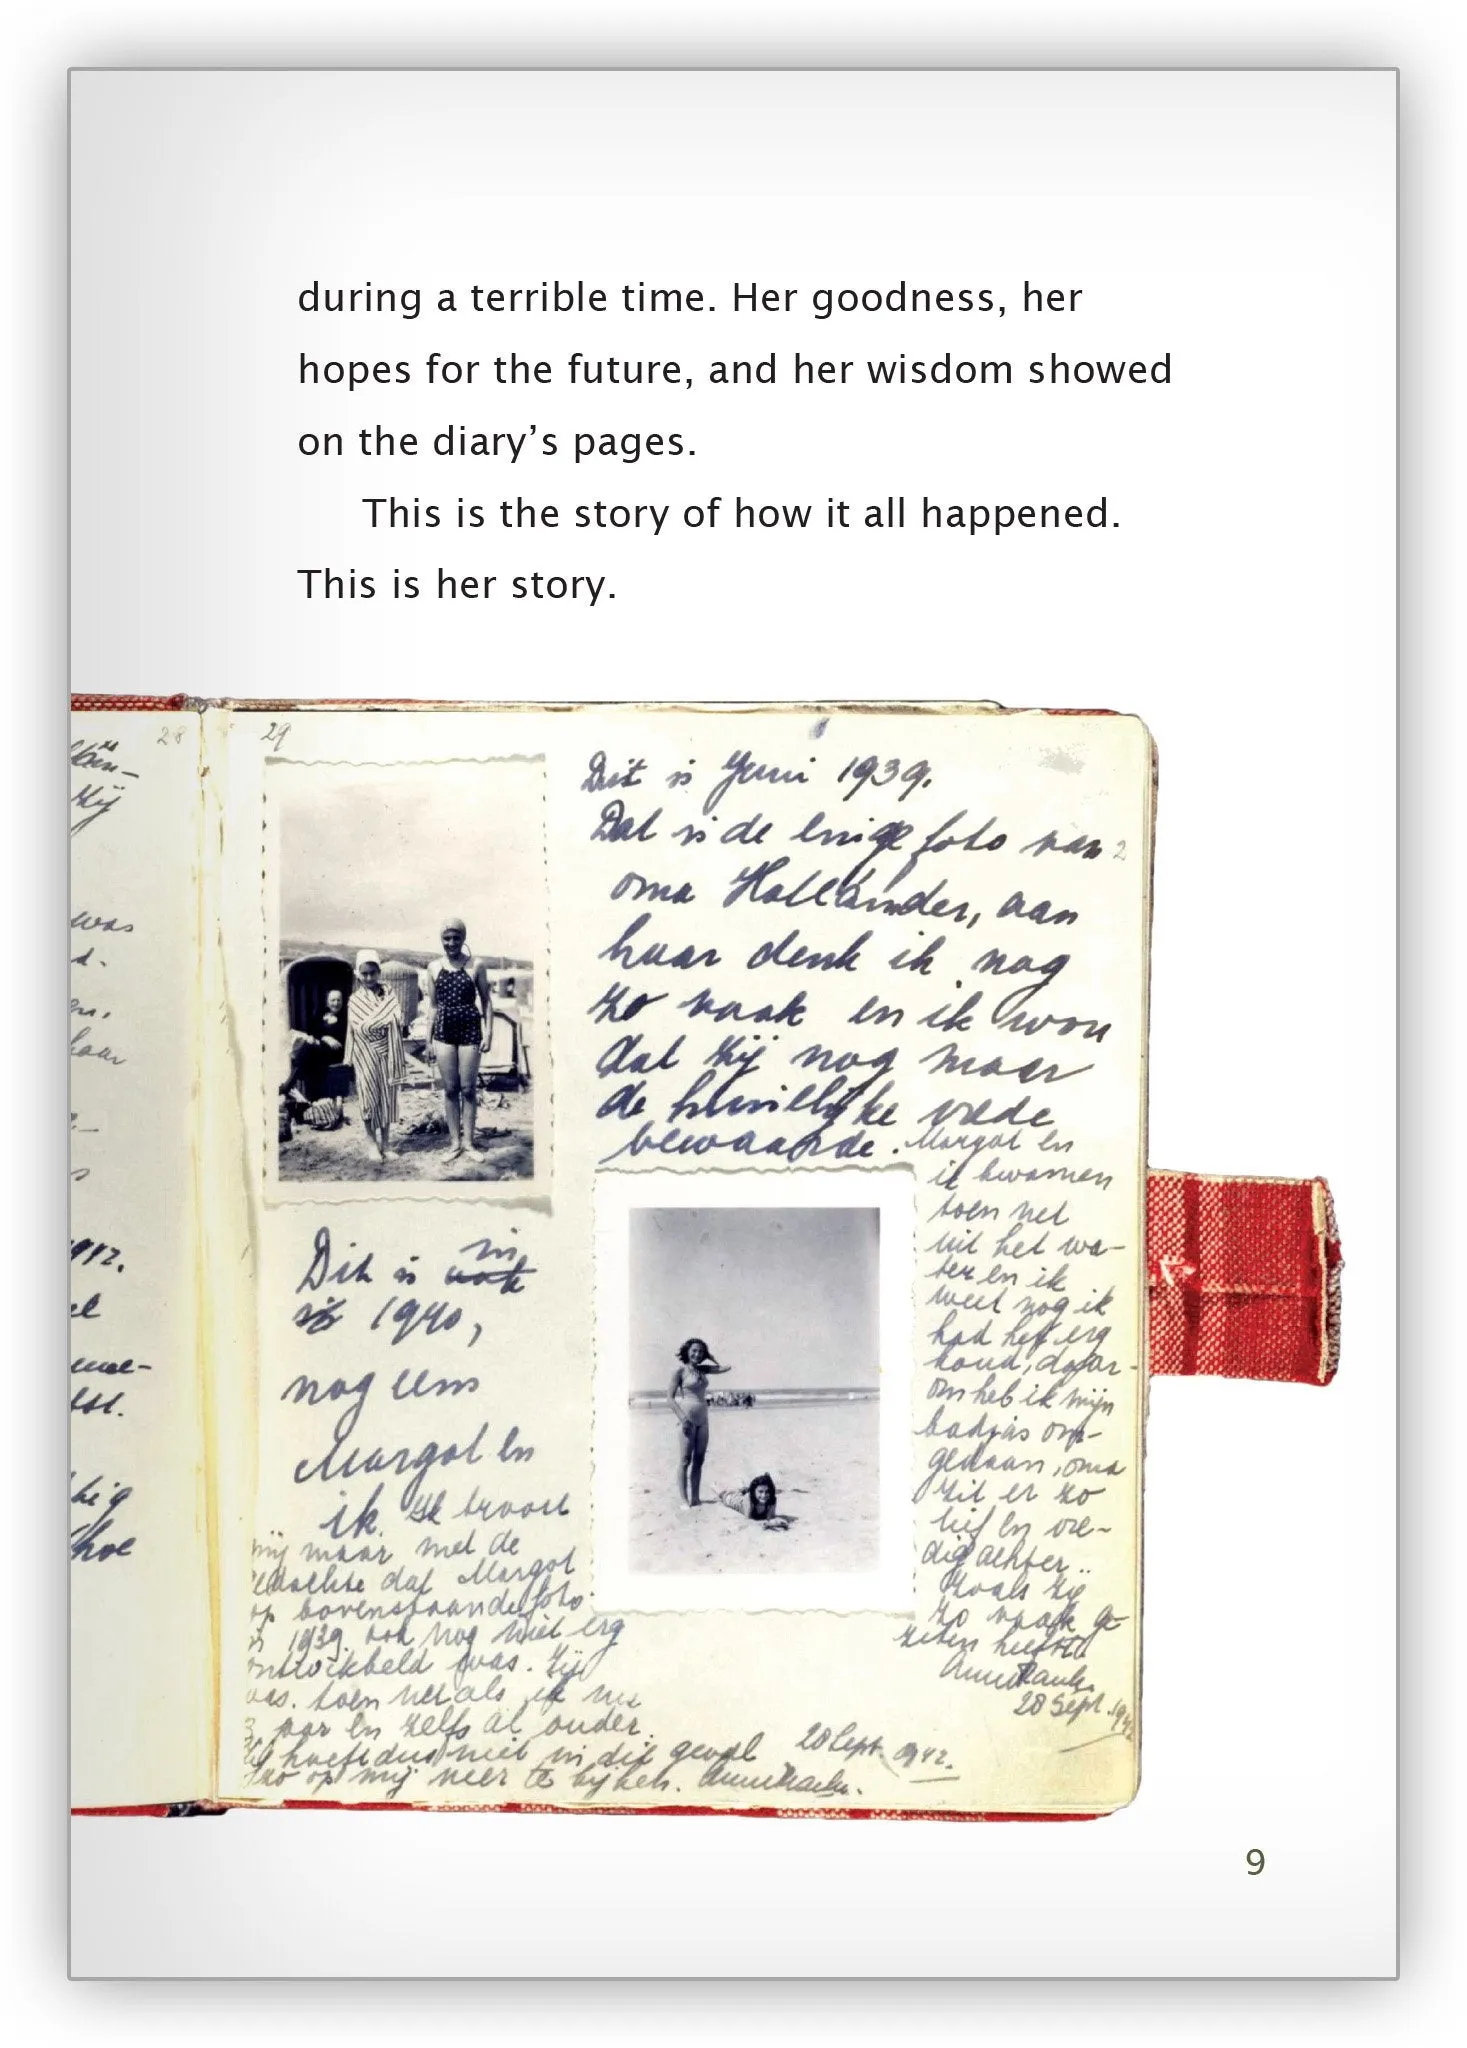 during a terrible time. Her goodness, her
hopes for the future, and her wisdom showed
on the diary’s pages.
This is the story of how it all happened.
This is her story.
28
29
was
haar
hoe
Dit is Juni 1939.
Dat is de enige foto van
oma Holländer, aan
haar denk ik nog
zo vaak en ik wou
dat zij nog maar
de huiselijke vrede
bewaarde. Margot en
ik kwamen
toen net
uit het wa-
ter en ik
weet nog ik
had het erg
koud, daar-
om heb ik mijn
badjas om-
gedaan, oma
zit er zo
lief en vre-
dig achter..
Zoals zij
zo vaak ge-
zeten heeft.
Anne Frank.
28 Sept. 1942
Dit is in
1940,
nog eens
Margot en
ik. Ik troost
mij maar met de
gedachte dat Margot
op bovenstaande foto
in 1939. ook nog niet erg
ontwikkeld was. Zij
was toen net als ik nu
13 jaar en zelfs al ouder.
Zij hoeft dus niet in dit geval
zo op mij neer te kijken. Anne Frank.
28 Sept. 1942.
9